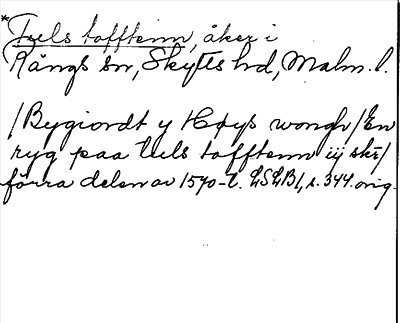 *Tuels tofftenn, åker i
Rängs sn, Skytts hd, Malm. l.
/Bygiordt y Høys wongh/En
ryg paa tuels tofftenn iij ske/
förra delen av 1570-t. LSLB1, s. 344. orig.